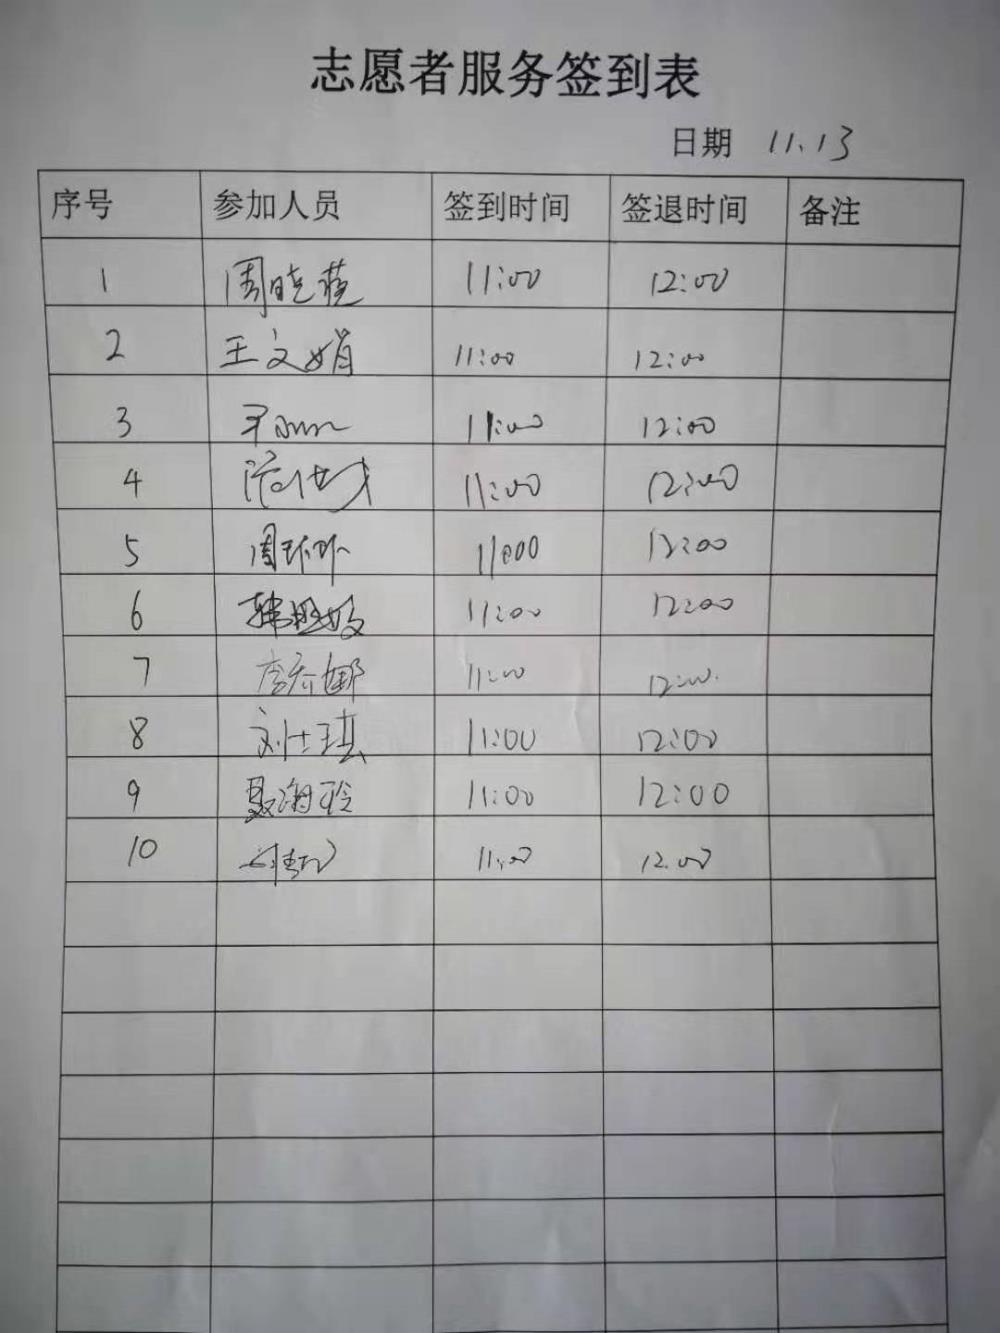 志愿者服务签到表
日期 11.13
序号 参加人员 签到时间 签退时间 备注
1 周晓莲 11:00 12:00
2 王文娟 11:00 12:00
3 11:00 12:00
4 11:00 12:00
5 周环环 11:00 12:00
6 韩 11:00 12:00
7 李乔娜 11:00 12:00
8 刘仕琪 11:00 12:00
9 聂海玲 11:00 12:00
10 11:00 12.00